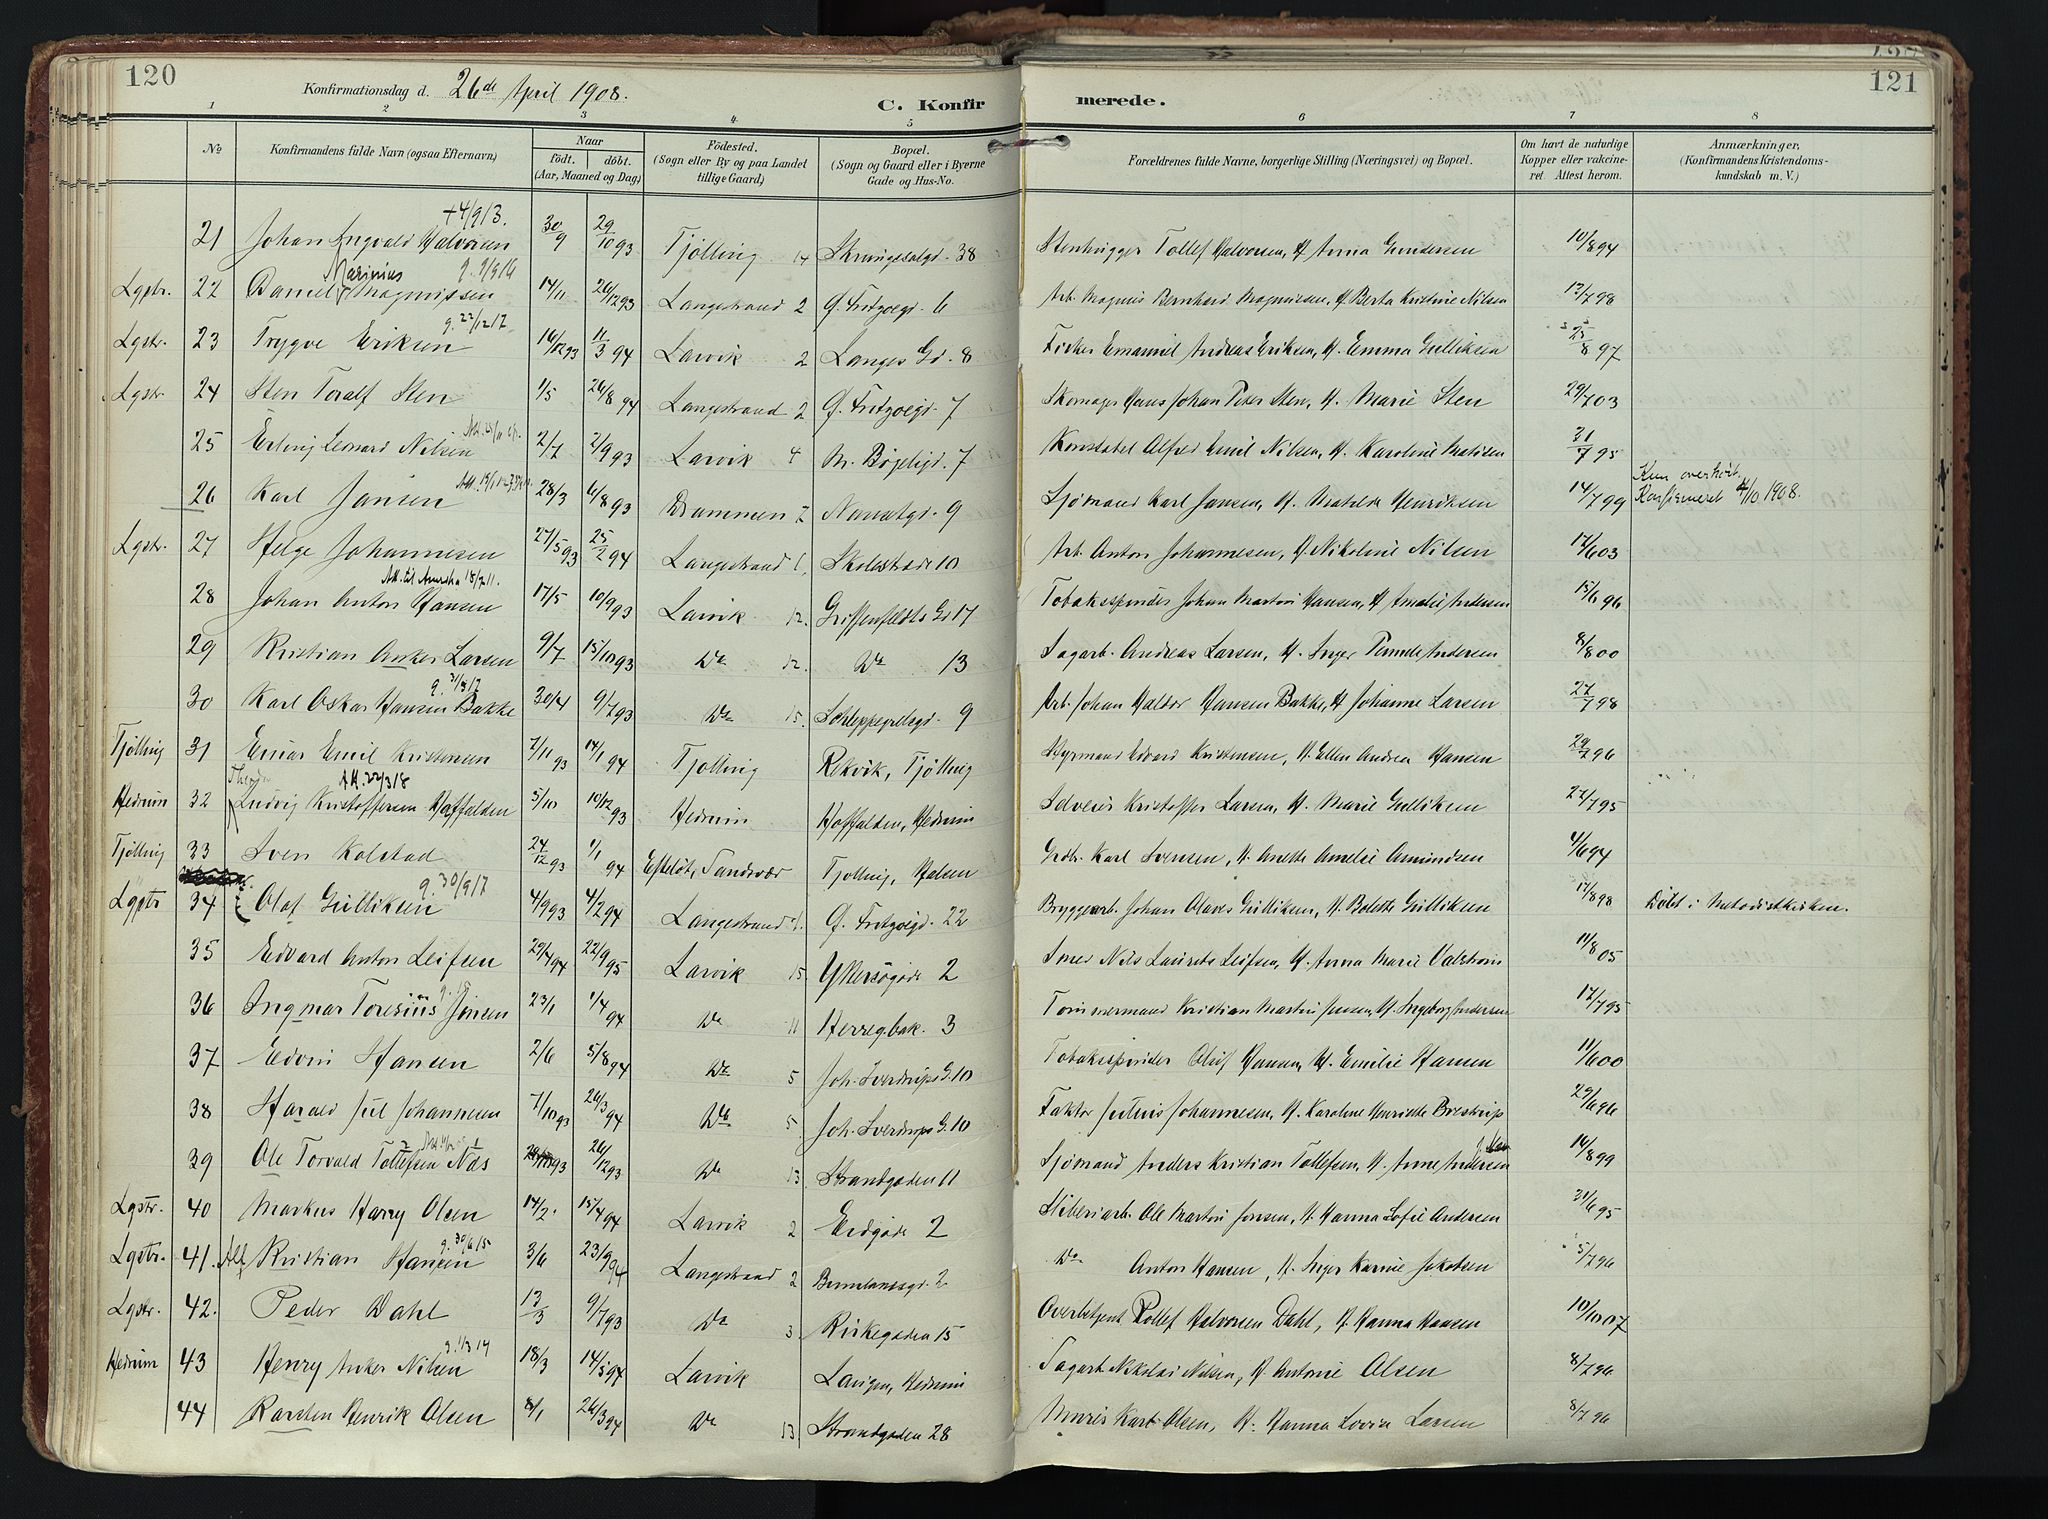 120
Konfirmationsdag d. 26de April 1908.
C. Konfir
merede.
121
1 2 3 4 5 6 7 8
No
Konfirmandens fulde Navn (ogsaa Efternavn)
Naar födt. döbt. (Aar, Maaned og Dag)
Födested. (Sogn eller By og paa Landet tillige Gaard)
Bopæl. (Sogn og Gaard eller i Byerne Gade og Hus-No.
Forældrenes fulde Navne, borgerlige Stilling (Næringsvei) og Bopæl.
Om havt de naturlige Kopper eller vakcineret. Attest herom.
Anmærkninger. (Konfirmandens Kristendomskundskab m. V.)
+4/9 13.
21 Johan Ingvald Halvorsen 30/9 29/10 93 Tjölling 14 Skrangesalgd. 38 Stenhugger Tollef Halvorsen, H. Anna Gundersen 10/8 94
Marinius g. 9/9 16
Lgstr. 22 Daniel Magnussen 14/11 26/12 93 Langestrand 2 Ø. Fritzøegd. 6 Arb. Magnus Bernhard Magnussen, H. Berta Kristine Nilsen 12/7 98
g. 22/12 17
Lgstr. 23 Trygve Eriksen 16/12 93 11/3 94 Larvik 2 Langes Gd. 8 Fisker Emanuel Andreas Eriksen, H. Emma Gulliksen 25/8 97
Lgstr. 24 Sten Toralf Sten 1/5 26/8 94 Langestrand 2 Ø. Fritzøegd. 7 Skomager Hans Johan Peter Sten, H. Marie Sten 29/7 03
25 Erling Leonard Nilsen 2/7 2/9 93 Larvik 4 N. Bøgeligd. 7 Konstabel Alfred Emil Nilsen, H. Karoline Matisen 31/7 95
26 Karl Jansen 28/3 6/8 93 Drammen 7 Nansetgd. 9 Sjømand Karl Jansen, H. Matilde Henriksen 14/7 99 Kun overhört. Konfirmeret 4/10 1908.
Lgstr. 27 Helge Johannesen 27/5 93 25/2 94 Langestrand 1, Skolestræde 10 Arb. Anton Johannesen, H. Nikoline Nilsen 12/6 03
Att. til Amerika 18/7 11.
28 Johan Anton Hansen 17/5 10/9 93 Larvik 12. Griffenfeldts Gd 17 Tobakspinder Johan Martin Hansen, H. Amalie Andersen 15/6 96
29 Kristian Anker Larsen 9/7 15/10 93 Do 12. Do 13 Sagarb. Andreas Larsen, H. Inger Pernele Andersen 8/8 00
g. 31/3 17
30 Karl Oskar Hansen Bakke 30/4 9/7 93 Do 15. Schleppegrelsgd. 9 Arb. Johan Haldor Hansen Bakke, H. Johanne Larsen 27/7 98
Tjølling 31 Einar Emil Kristensen 7/11 93 14/1 94 Tjølling Rekvik, Tjølling Styrmand Edvard Kristensen, H. Ellen Andrea Hansen 29/7 96
Att. 22/3 18
Hedrum 32 Ludvig Kristoffersen Hoffalden 5/10 10/12 93 Hedrum Hoffalden, Hedrum Selveier Kristoffer Larsen, H. Marie Gulliksen 22/7 95
Tjølling 33 Sven Kolstad 24/12 93 1/1 94 Efteløt, Sandsvær Tjølling, Halsen Grdbr. Karl Svensen, H. Anette Amelie Amundsen 4/6 94
g. 30/9 17
Lgstr 34 Olaf Gulliksen 4/9 93 4/2 94 Langestrand 1. Ø. Fritzøegd. 22 Bryggearb. Johan Olaves Gulliksen, H. Bolette Gulliksen 17/8 98 Døbt i Metodistkirken.
35 Edvard Anton Leifsen 29/4 94 22/9 95 Larvik 15. Yttersøgade 2 Smed Nils Laurits Leifsen, H. Anna Marie Valstrøm 11/8 05
36 Ingmar Toresius Jensen 23/1 1/4 94 Do 11 Herregbak. 3 Tømmermand Kristian Martin Jensen, H. Ingeborg Andersen 17/7 95
37 Edvin Hansen 2/6 5/8 94 Do 5 Joh. Sverdrups G. 10 Tobakspinder Oluf Hansen, H. Emilie Hansen 11/6 00
38 Harald Jul Johannesen 7/10 93 26/3 94 Do 5. Joh. Sverdrups G. 10 Faktor Julius Johannesen, H. Karoline Henriette Brestrup 29/6 96
39 Ole Torvald Tollefsen Næs 93 26/12 93 Do 13 Strandgaden 11 Sjømand Anders Kristian Tollefsen, H. Anne Andersen 14/8 99
Lgstr. 40 Markus Harry Olsen 14/2. 15/4 94 Larvik 2 Eidgade 2 Støberiarb. Ole Martin Jensen, H. Hanna Sofie Andersen 31/6 95
g. 30/6 15
Lgstr. 41. Alf Kristian Hansen 3/6 23/9 94 Langestrand 2 Brunlanæsgd. 2 Do Anton Hansen, H. Inger Karine Jakobsen 5/7 96
Lgstr. 42. Peder Dahl 13/3 9/7 93 Do 3. Kirkegaden 15 Overbetjent Rollef Halvorsen Dahl, H. Hanna Hansen 10/10 07
g. 1/3 14
Hedrum 43 Henry Anker Nilsen 18/3 14/5 94 Larvik Laugen, Hedrum Sagarb. Nikolai Nilsen, H. Antonie Olsen 8/7 96
44 Karsten Henrik Olsen 8/1 26/3 94 Do 13 Strandgaden 28 Murer Karl Olsen, H. Hanna Lovisa Larsen 8/7 96